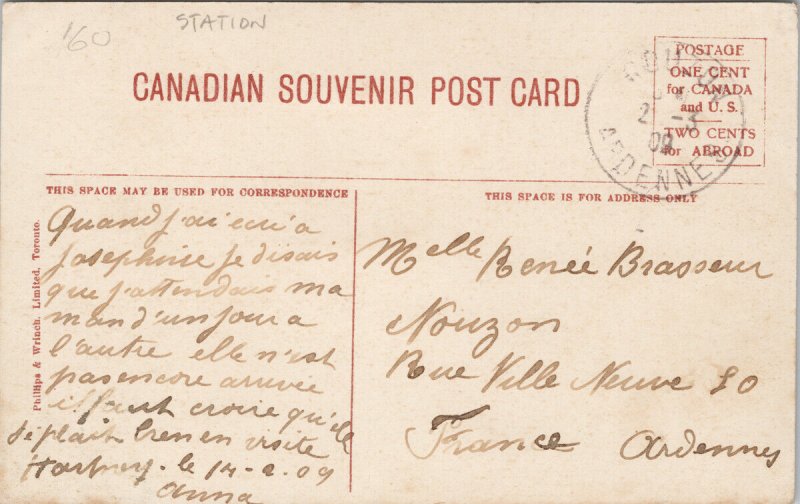 160
STATION
CANADIAN SOUVENIR POST CARD
POSTAGE
ONE CENT
for CANADA
and U. S.
TWO CENTS
for ABROAD
NOUZON
2 -3
09
ARDENNES
THIS SPACE MAY BE USED FOR CORRESPONDENCE
THIS SPACE IS FOR ADDRESS ONLY
Phillips & Wrinch, Limited, Toronto.
Quand j'ai ecri a
Josephine je disais
que j'attendais ma
man d'un jour a
l'autre elle n'est
pas encore arrivée
il faut croire qu'elle
se plait bien en visite
Hartney. le 14-2-09
Anna
Melle Renée Brasseur
Nouzon
Rue Ville Neuve 80
France Ardennes